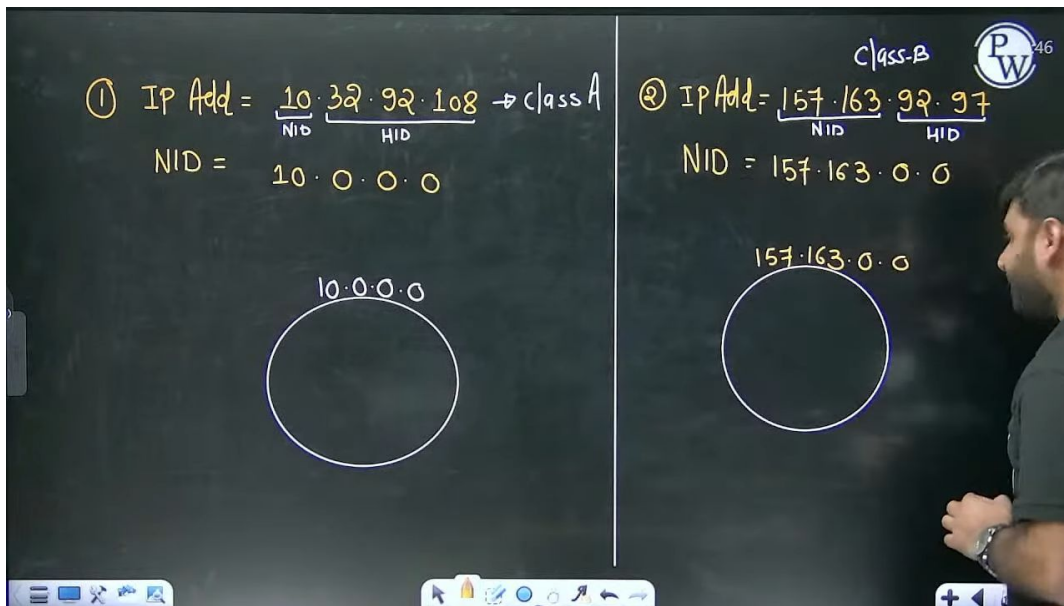 ① IP Add = 10.32.92.108 → Class A
NID HID
NID = 10.0.0.0
10.0.0.0
Class-B
② IP Add = 157.163.92.97
NID HID
NID = 157.163.0.0
157.163.0.0
PW
:46